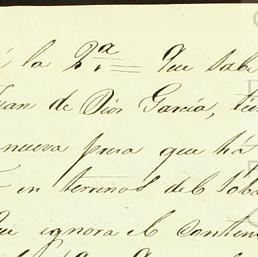 á la 2.ª = Que sabe
Juan de Dios García,
nueva presa que há
en terrenos del Soba
que ignora el conten